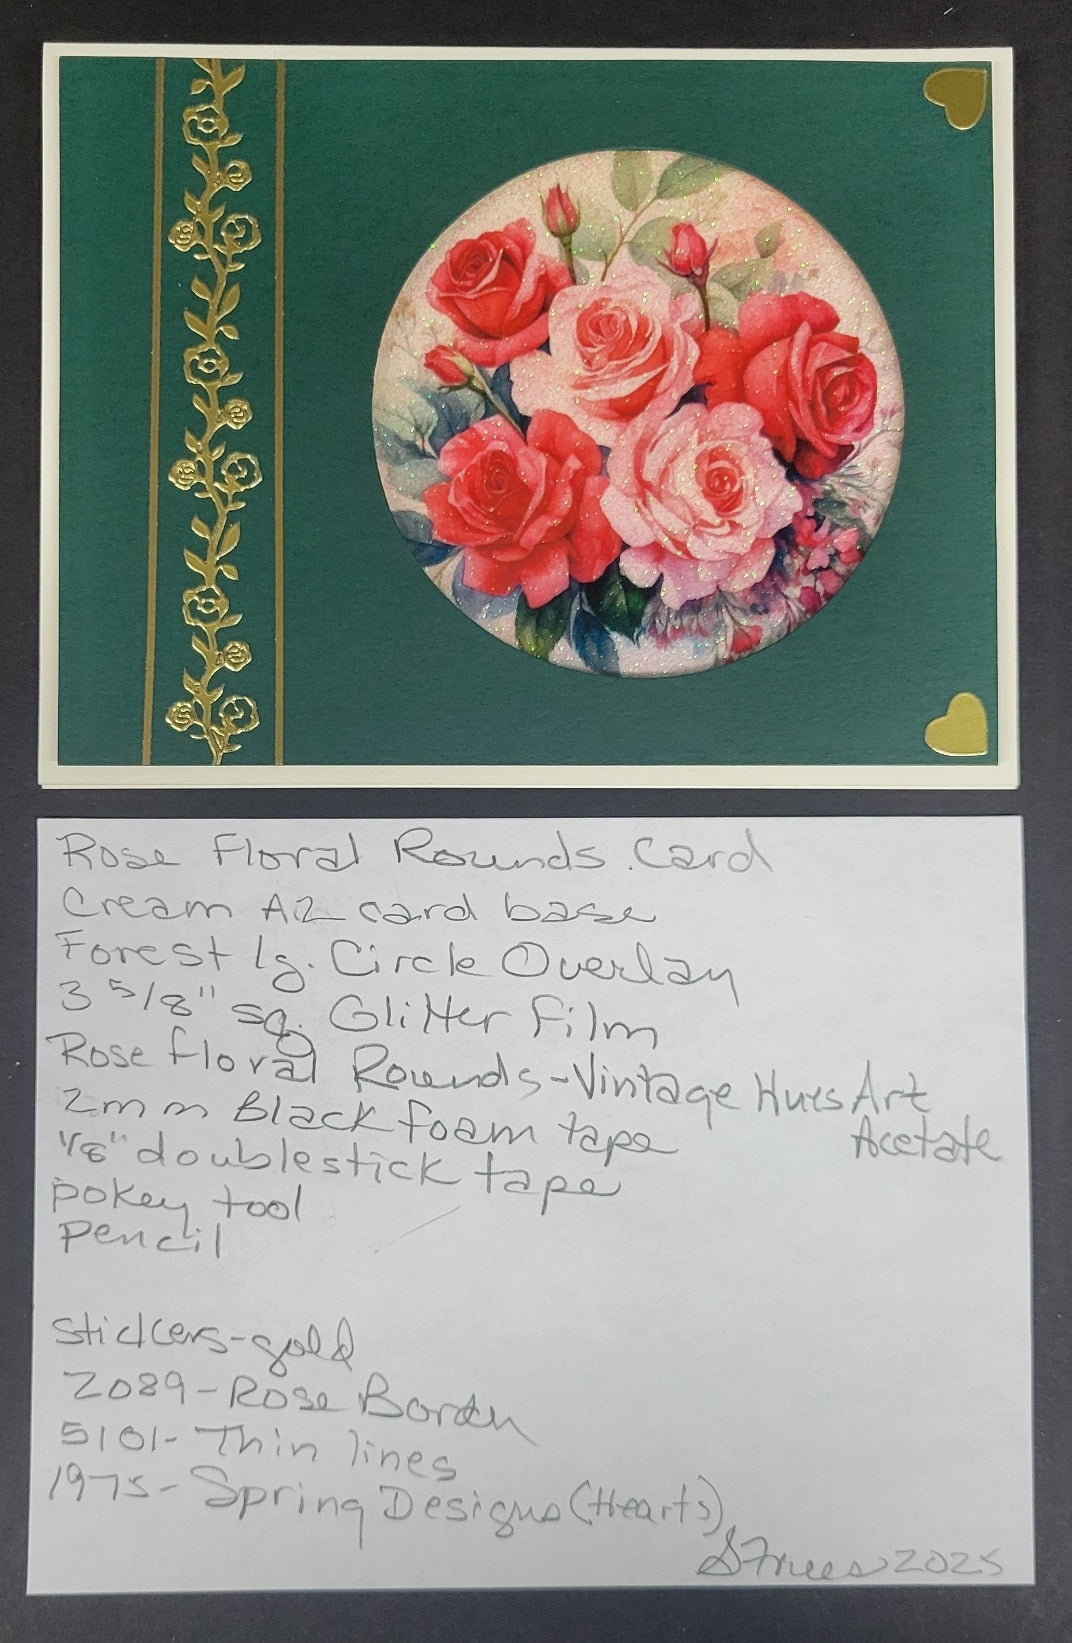 Rose Floral Rounds Card
Cream A2 card base
Forest lg. Circle Overlay
3 5/8" sq. Glitter Film
Rose Floral Rounds-Vintage Hues Art
Acetate
2mm Black foam tape
1/8" doublestick tape
pokey tool
pencil
stickers-gold
2089-Rose Border
5101-Thin lines
1975-Spring Designs (Hearts)
SFrees 2025